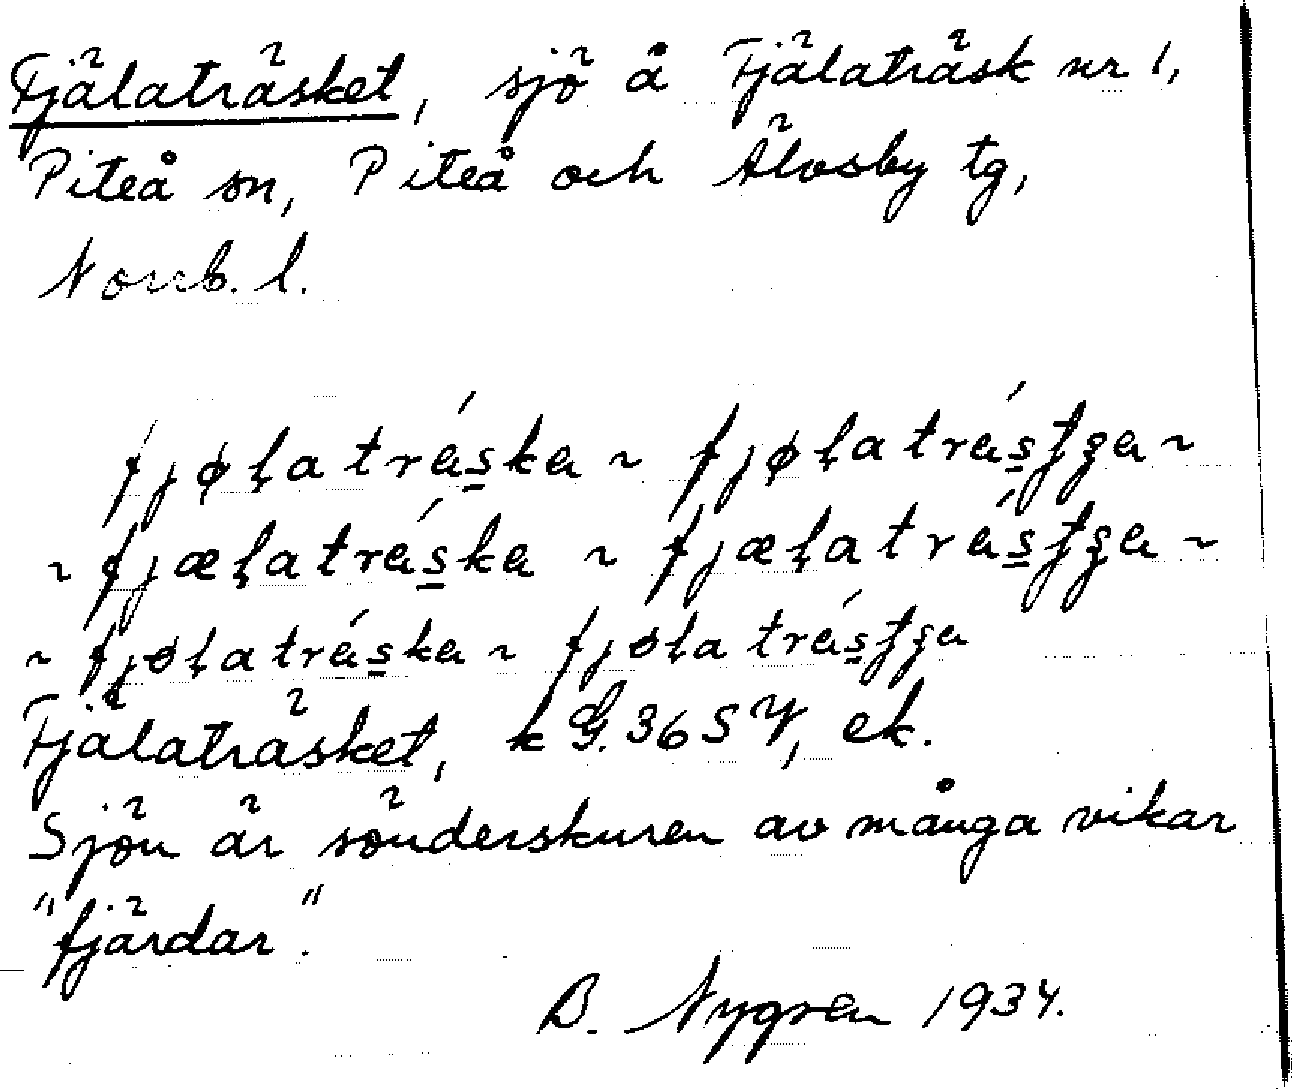 Fjälaträsket, sjö å Fjälaträsk nr 1,
Piteå sn, Piteå och Älvsby tg,
Norrb. l.
fjøḷatráska ~ fjøḷatrásʄʒa ~
~ fjæḷatráska ~ fjæḷatrásʄʒa ~
~ fjøḷatráska ~ fjøḷatrásʄʒa
Fjälaträsket, k G. 36 SV, ek.
Sjön är sönderskuren av många vikar
"fjärdar".
B. Nygren 1934.